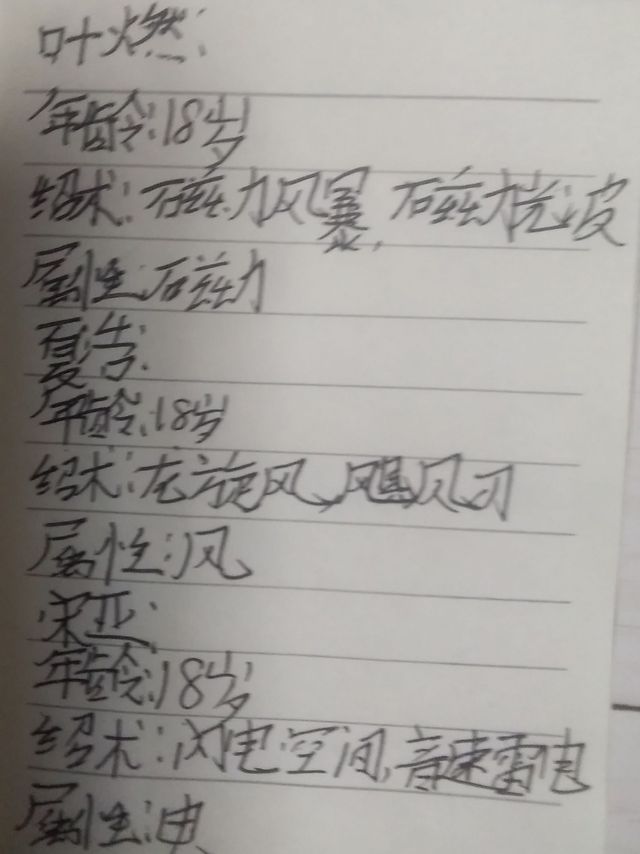 叶燃:
年龄:18岁
绍术:磁力风暴,磁力光波
属性:磁力
夏洁:
年龄:18岁
绍术:龙旋风,飓风刃
属性:风
宋亚:
年龄:18岁
绍术:闪电空间,音速雷电
属性:电